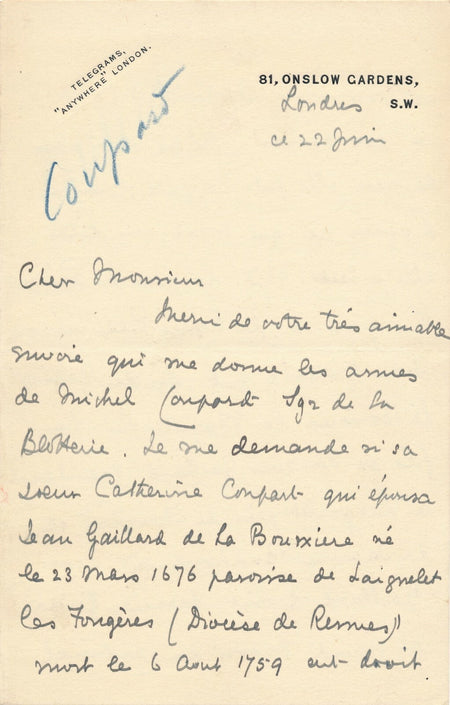 TELEGRAMS,
"ANYWHERE" LONDON.
81, ONSLOW GARDENS,
S.W.
Londres
ce 22 Juin
Coupard
Cher Monsieur
Merci de votre très aimable
envoie qui me donne les armes
de Michel Coupard Sgr de la
Blotterie. Je me demande si sa
soeur Catherine Coupart qui épousa
Jean Gaillard de La Bourxiere né
le 23 Mars 1676 paroisse de Laignelet
les Fougères (Diocèse de Rennes)
mort le 6 Aout 1759 eut droit